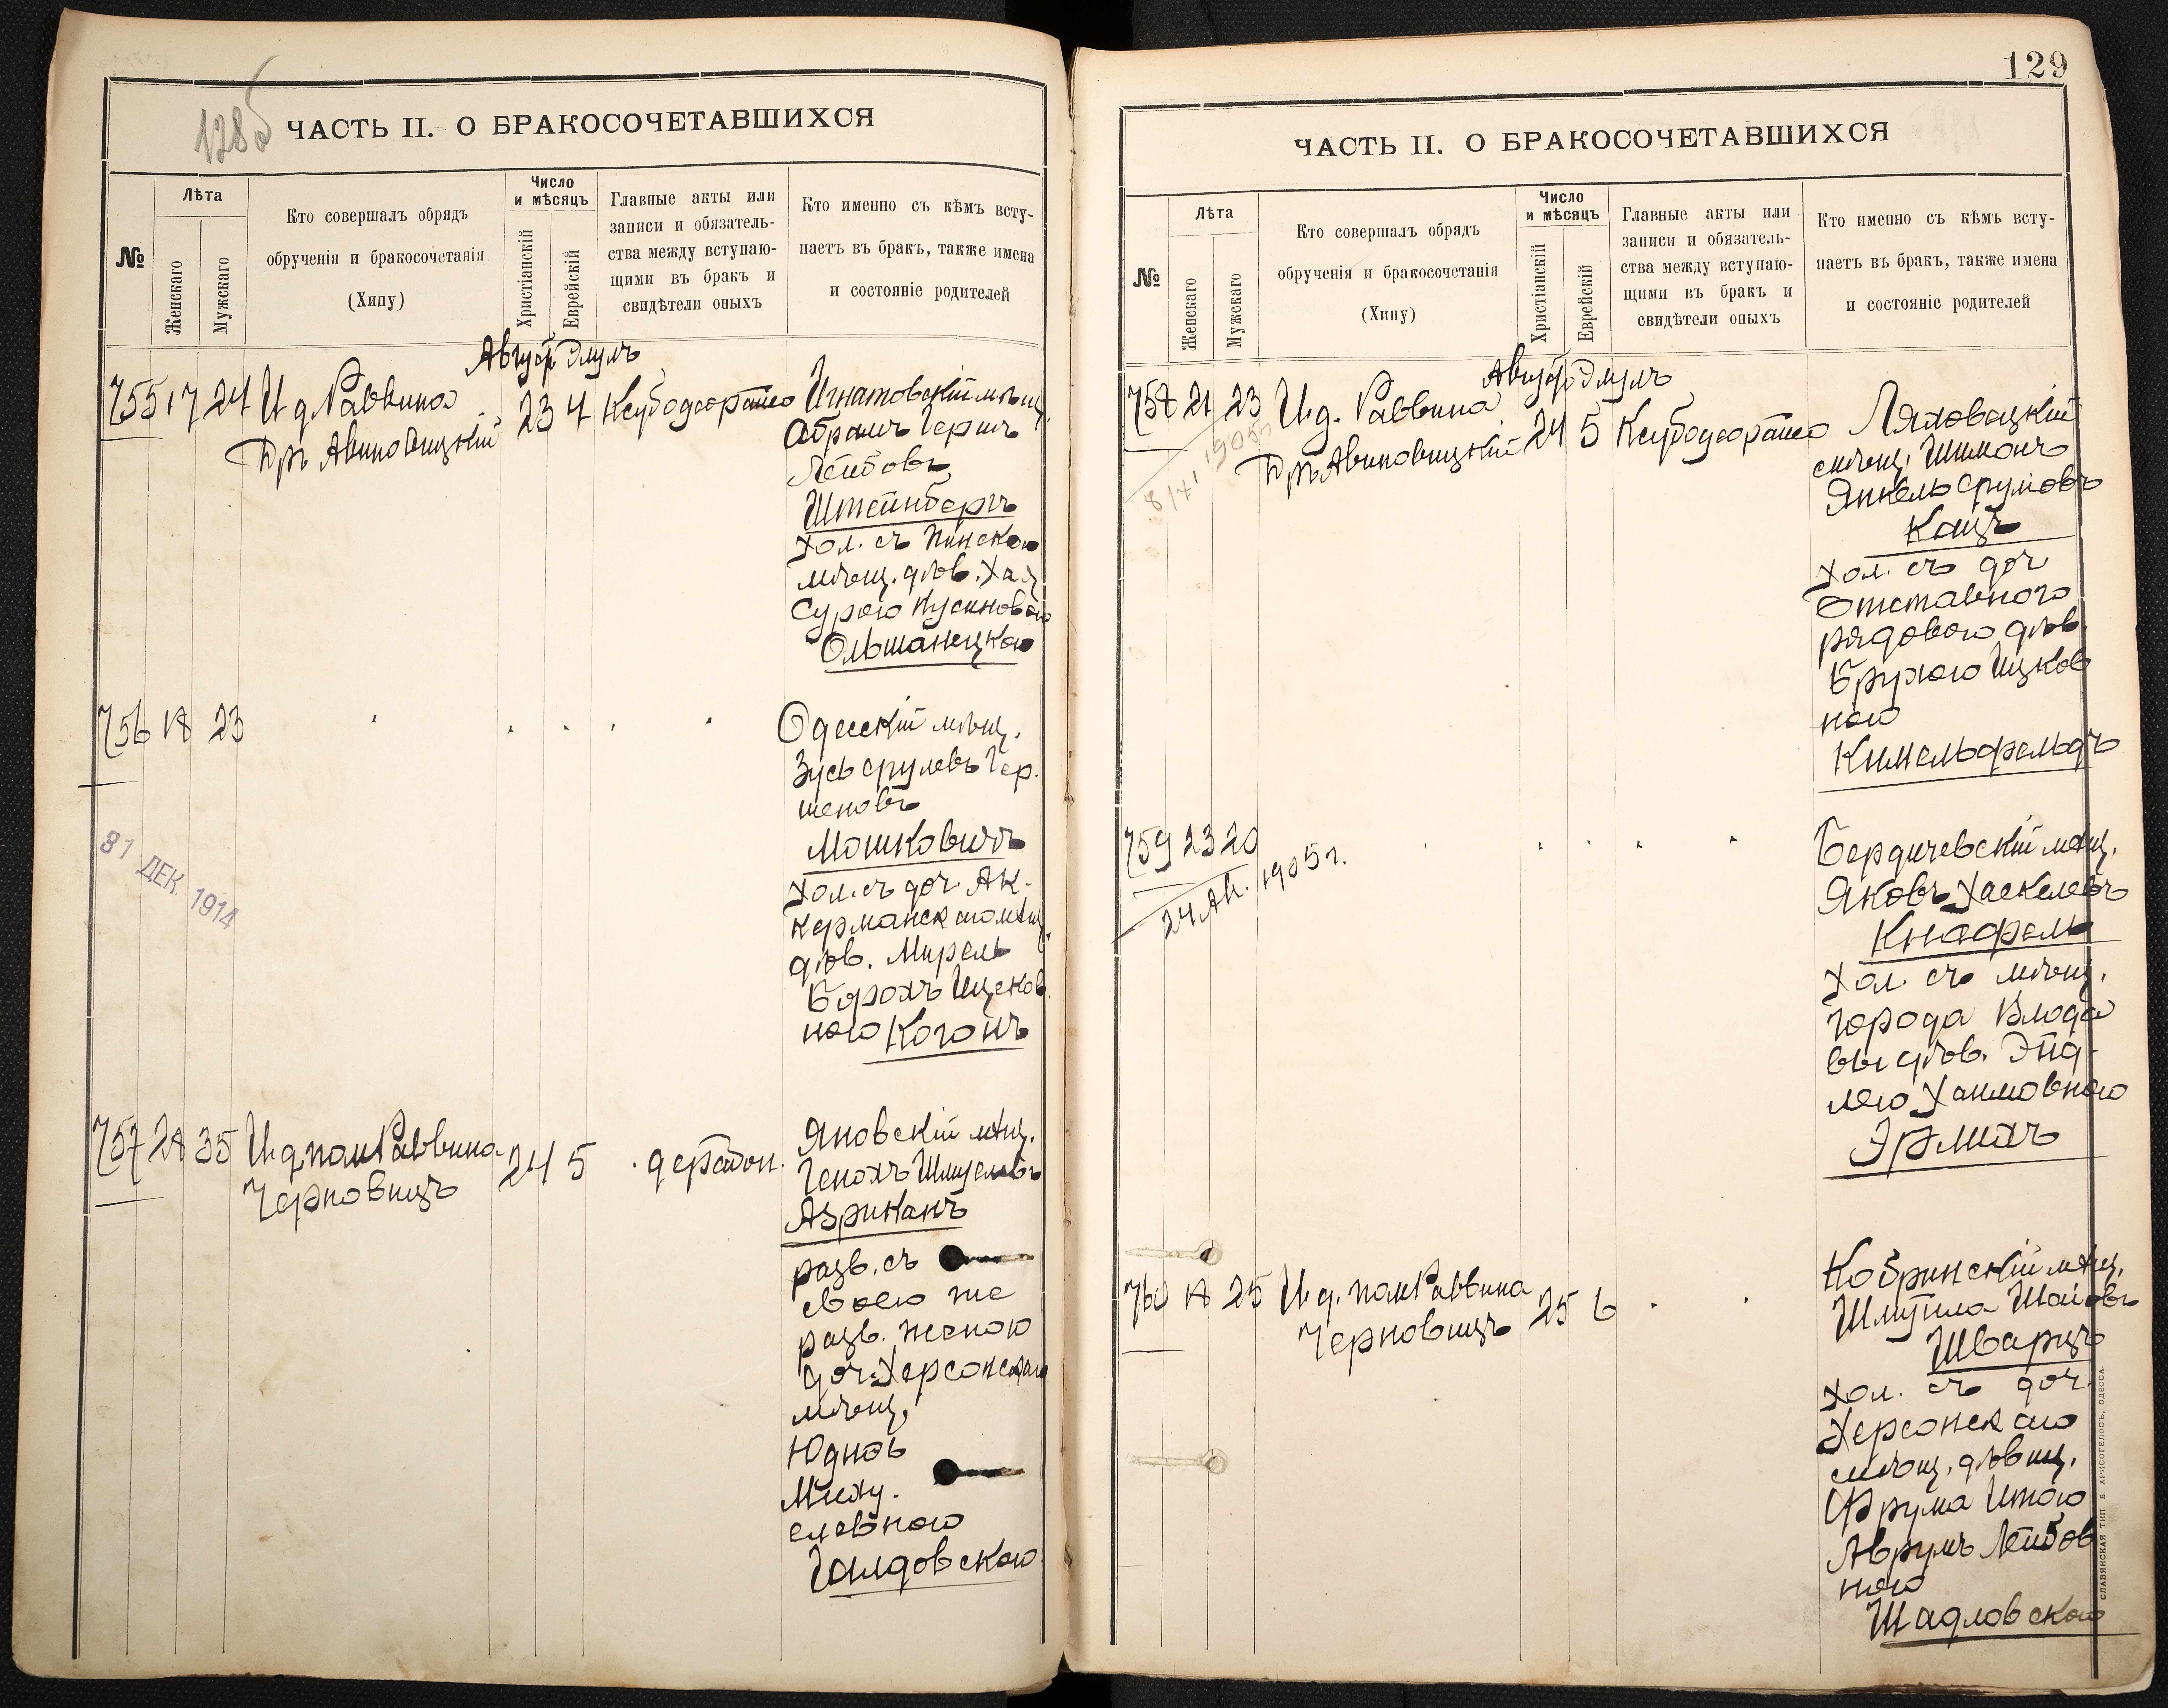 128б
ЧАСТЬ II. О БРАКОСОЧЕТАВШИХСЯ
№
Лѣта
Женскаго
Мужскаго
Кто совершалъ обрядъ
обрученія и бракосочетанія
(Хипу)
Число
и мѣсяцъ
Христіанскій
Еврейскій
Главные акты или
записи и обязатель-
ства между вступаю-
щими въ бракъ и
свидѣтели оныхъ
Кто именно съ кѣмъ всту-
паетъ въ бракъ, также имена
и состояніе родителей
Август Элулъ
755 17 24 И д Раввина 23 4
Др Авиновицкій
Игнатовскій мѣщ.
Абрамъ Гершъ
Лейбовъ
Штейнбергъ
хол. съ Пинскою
мѣщ. дѣв. Хая
Сурою Кусиновою
Ольшанецкою
756 18 23
Одесскій мѣщ.
Зусь Срулевъ Гер.
шеновъ
Мошковичъ
хол. съ доч. Ак-
керманскаго мѣщ.
дѣв. Мирель
Борохъ Ицков
ною Коганъ
31 ДЕК. 1914
757 28 35 И д. пом Раввина 24 5
Черновицъ
Яновскій мѣщ.
Генохъ Шмулевъ
Азриканъ
разв. съ
своею же
разв. женою
доч. Херсонскаго
мѣщ.
Юднов
Миху.
елевною
Галдовскою
129
ЧАСТЬ II. О БРАКОСОЧЕТАВШИХСЯ
№
Лѣта
Женскаго
Мужскаго
Кто совершалъ обрядъ
обрученія и бракосочетанія
(Хипу)
Число
и мѣсяцъ
Христіанскій
Еврейскій
Главные акты или
записи и обязатель-
ства между вступаю-
щими въ бракъ и
свидѣтели оныхъ
Кто именно съ кѣмъ всту-
паетъ въ бракъ, также имена
и состояніе родителей
Август Элулъ
758 21 23 И.д. Раввина 24 5
Др. Авиновицкій
Ляховецкій
мѣщ. Шимонъ
Янкель Сруловъ
Кацъ
хол. съ доч
Отставного
рядового дѣв.
Брухою Ицков
ною
Кимельфельдъ
759 23 20
24 Ап. 1905 г.
Бердичевскій мѣщ.
Яковъ Хаскелевъ
Кнафель
хол. съ мѣщ.
города Влода
вы дѣв. Энд-
лею Хаимовною
Эрлихъ
760 18 25 И.д. пом Раввина 25 6
Черновицъ
Кобринскій мѣщ.
Шмуила Шаіовъ
Шварцъ
хол. съ доч.
Херсонскаго
мѣщ. дѣвиц.
Фрума Итою
Аврумъ Лейбов
ною
Шадловскою
СЛАВЯНСКАЯ ТИП. Е. ХРИСОГЕЛОСЪ, ОДЕССА